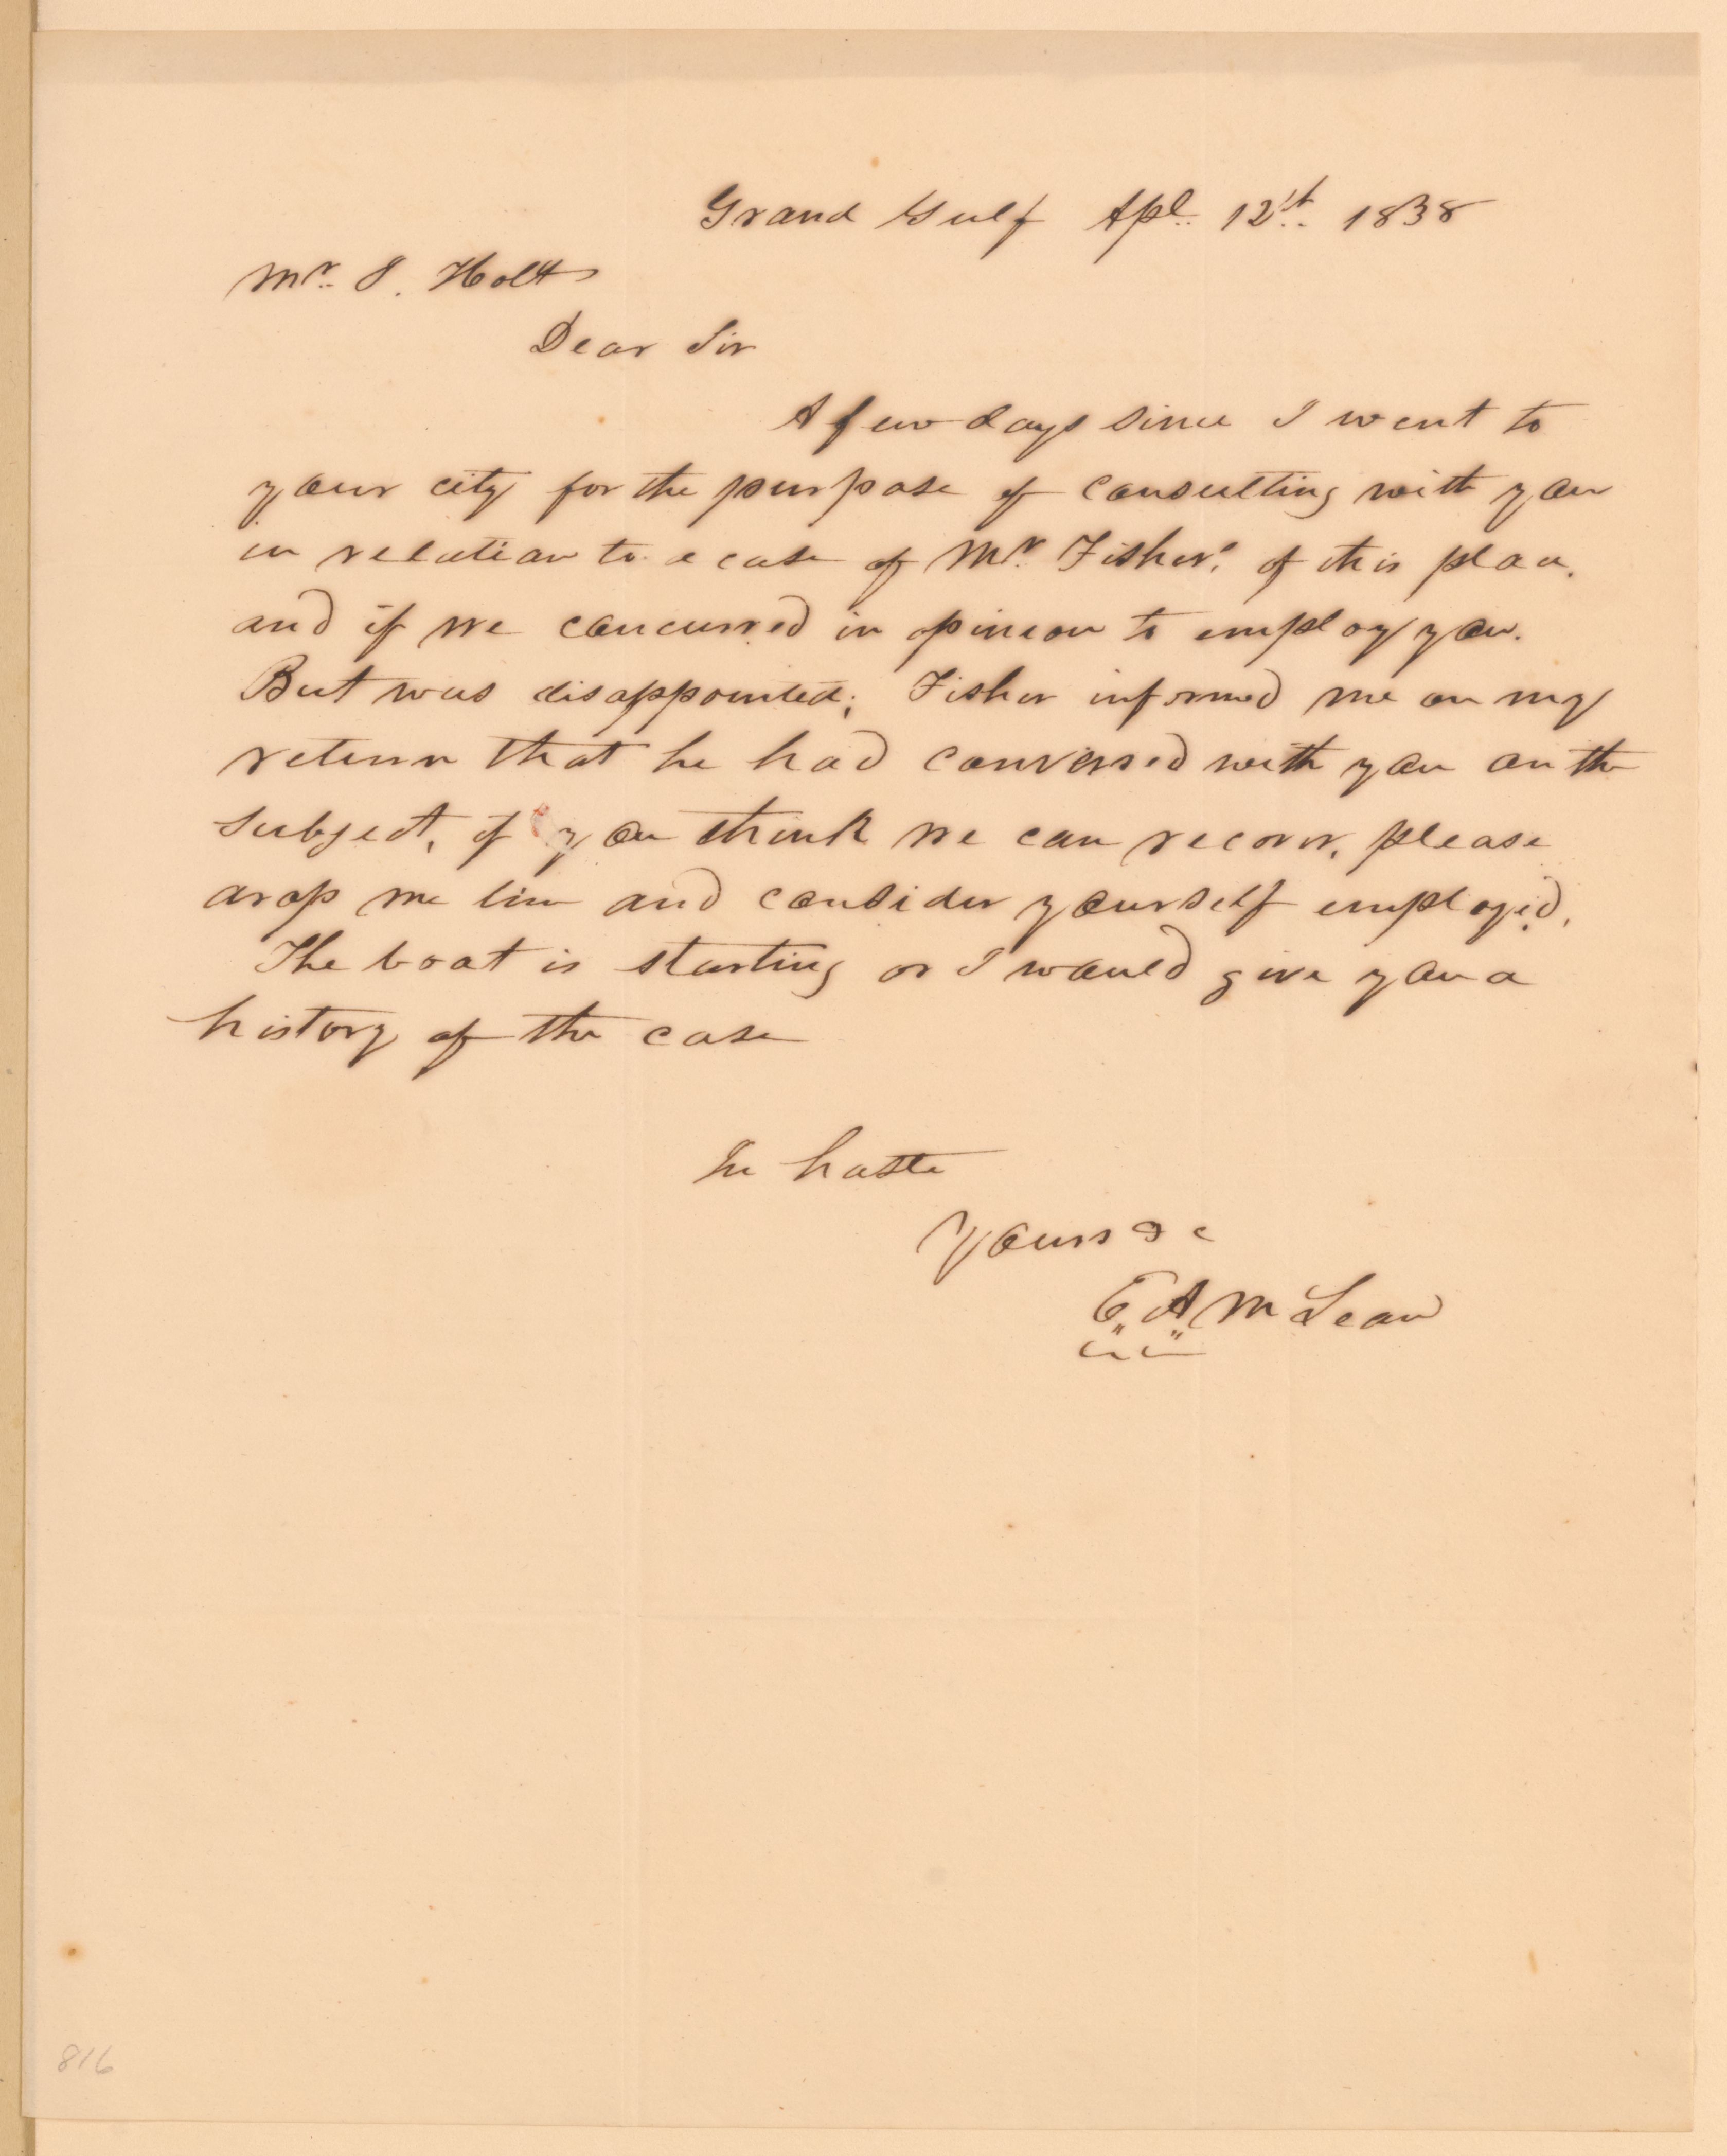 Grand Gulf Apl. 12th. 1838
Mr. J. Holt
Dear Sir
A few days since I went to
your city for the purpose of consulting with you
in relation to a case of Mr. Fisher's of this place.
and if we concurred in opinion to employ you.
But was disappointed; Fisher informed me on my
return that he had conversed with you on the
subject, if you think we can recover, please
drop me line and consider yourself employed.
The boat is starting or I would give you a
history of the case
In haste
Yours &c
E. A. McLean
816